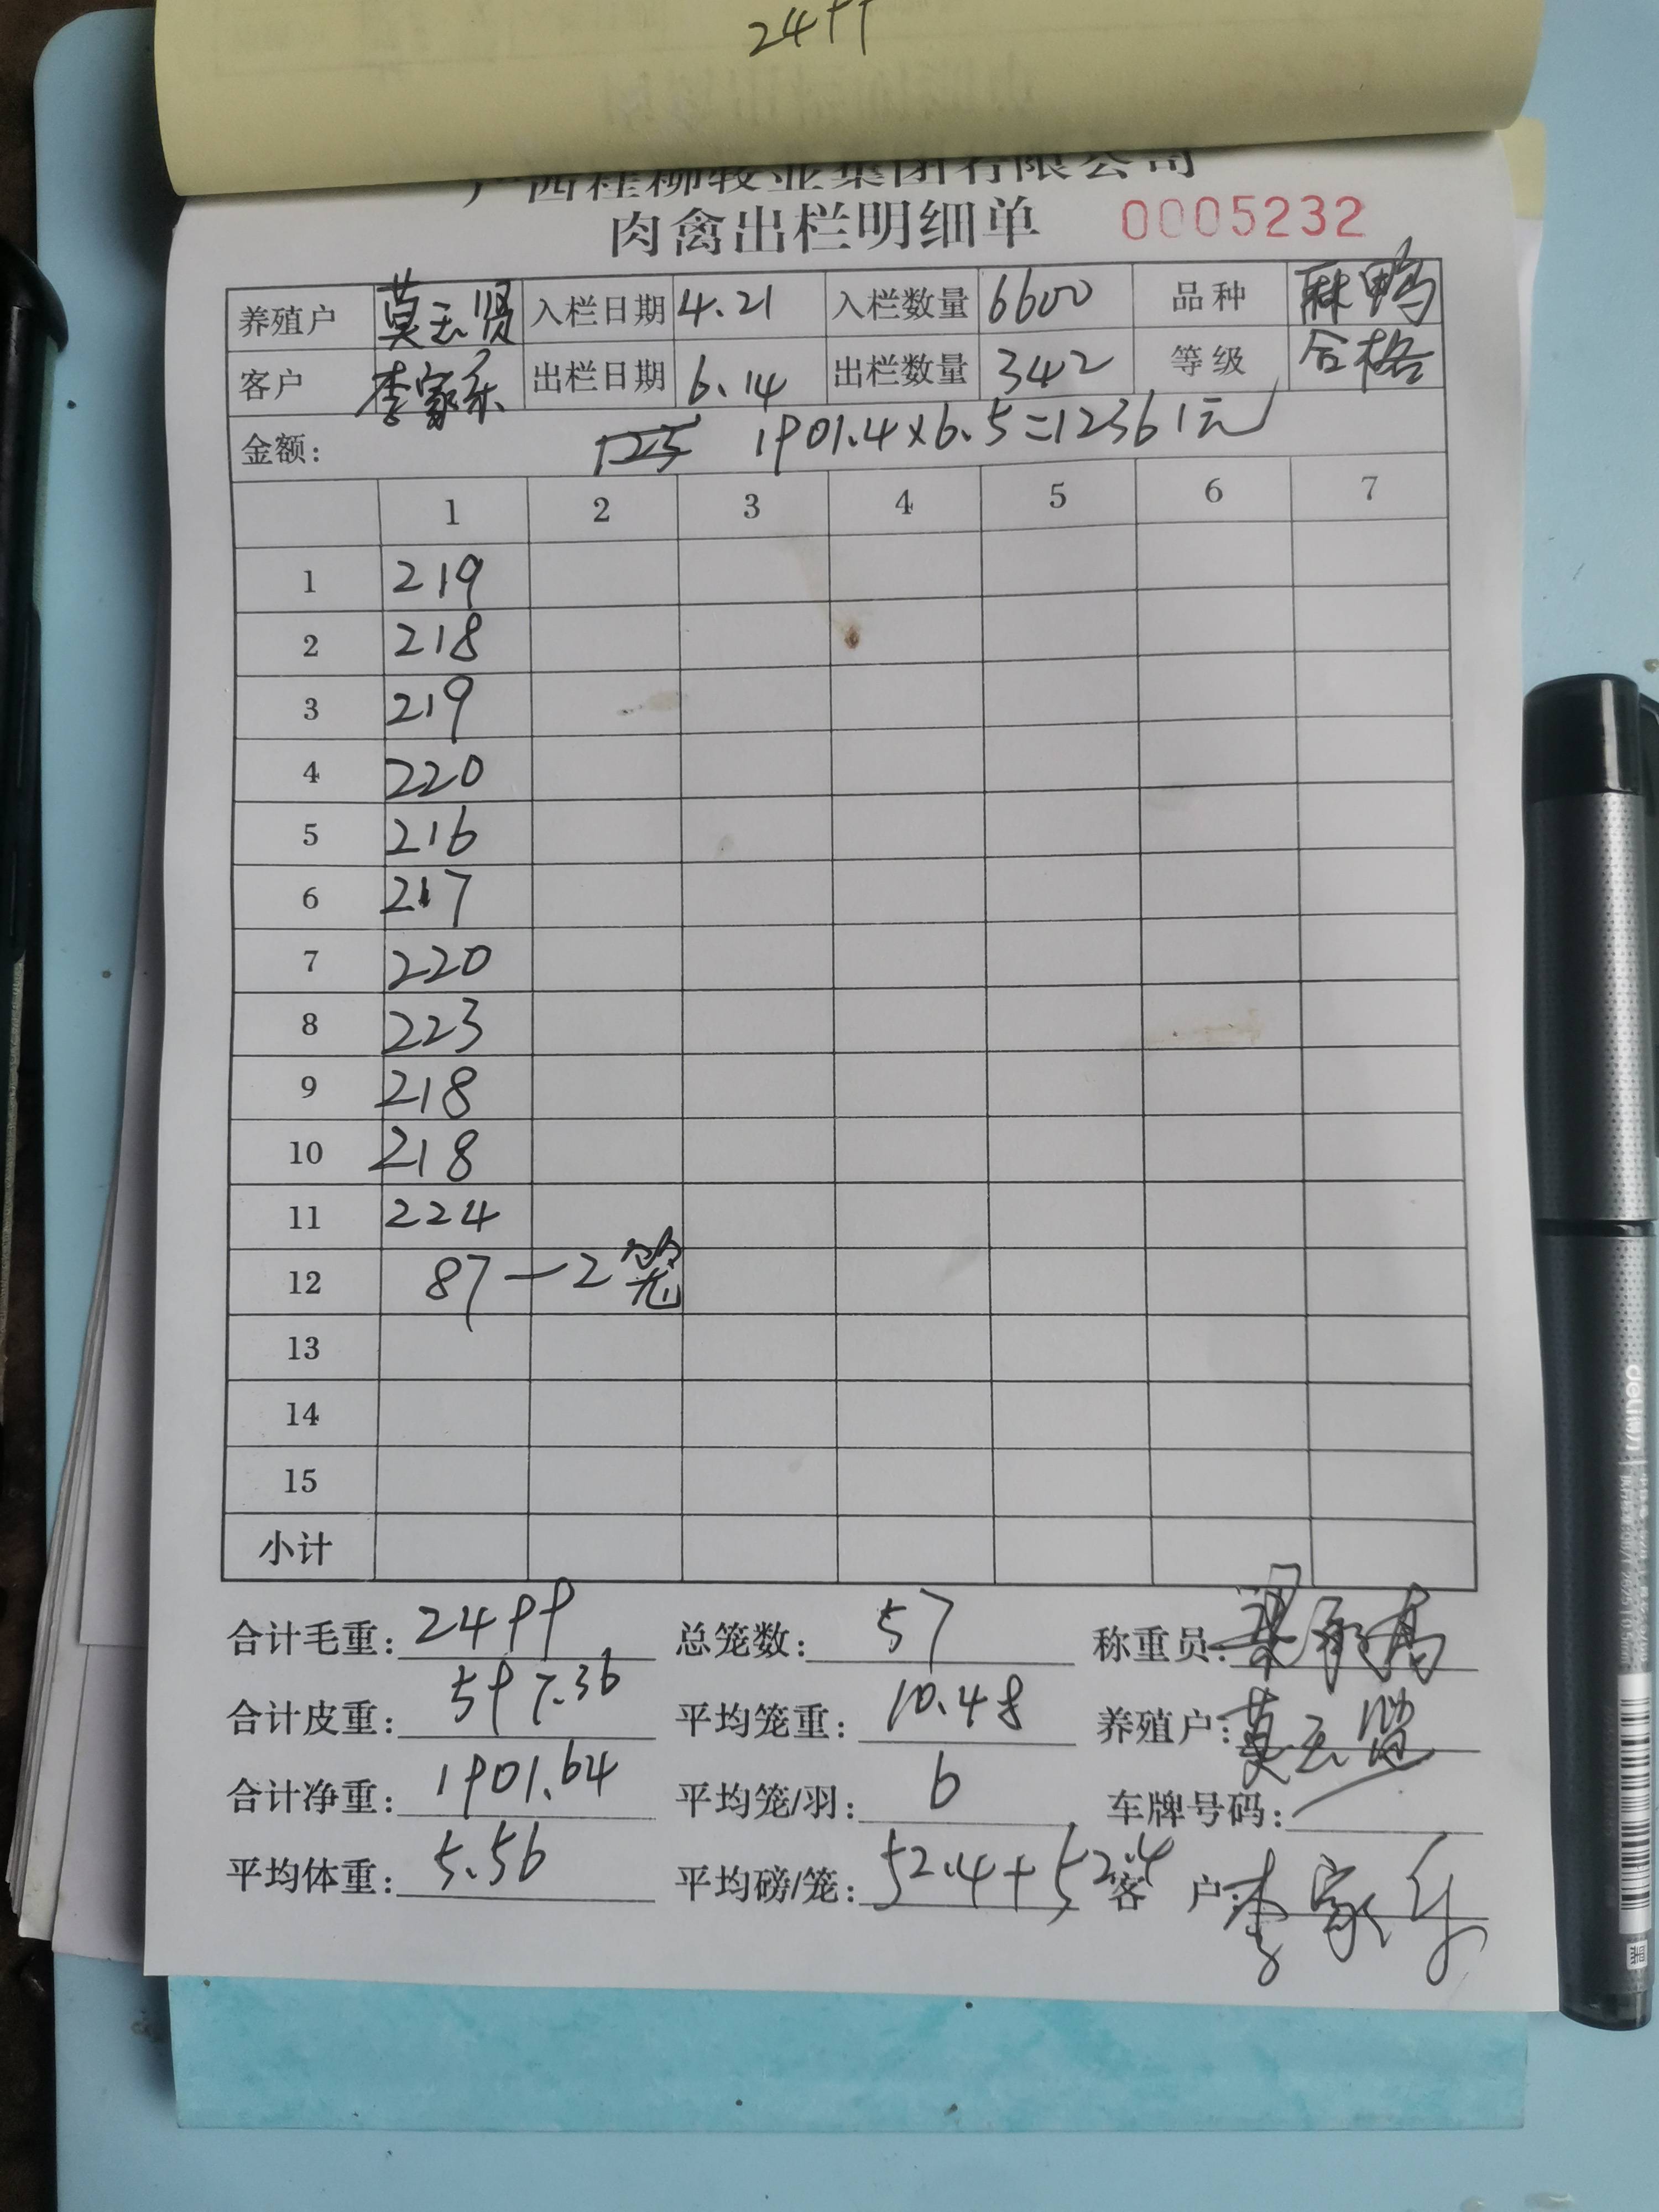 2499
广西桂柳牧业集团有限公司
肉禽出栏明细单 0005232
养殖户 莫云贤 入栏日期 4.21 入栏数量 6600 品种 麻鸭
客户 李家乐 出栏日期 6.14 出栏数量 342 等级 合格
金额: 1901.4×6.5=12361元
1 2 3 4 5 6 7
1 219
2 218
3 219
4 220
5 216
6 217
7 220
8 223
9 218
10 218
11 224
12 87—2笼
13
14
15
小计
合计毛重: 2499 总笼数: 57 称重员:
合计皮重: 597.36 平均笼重: 10.48 养殖户: 莫云贤
合计净重: 1901.64 平均笼/羽: 6 车牌号码:
平均体重: 5.56 平均磅/笼: 52.4+52.4 客户: 李家乐
deli得力